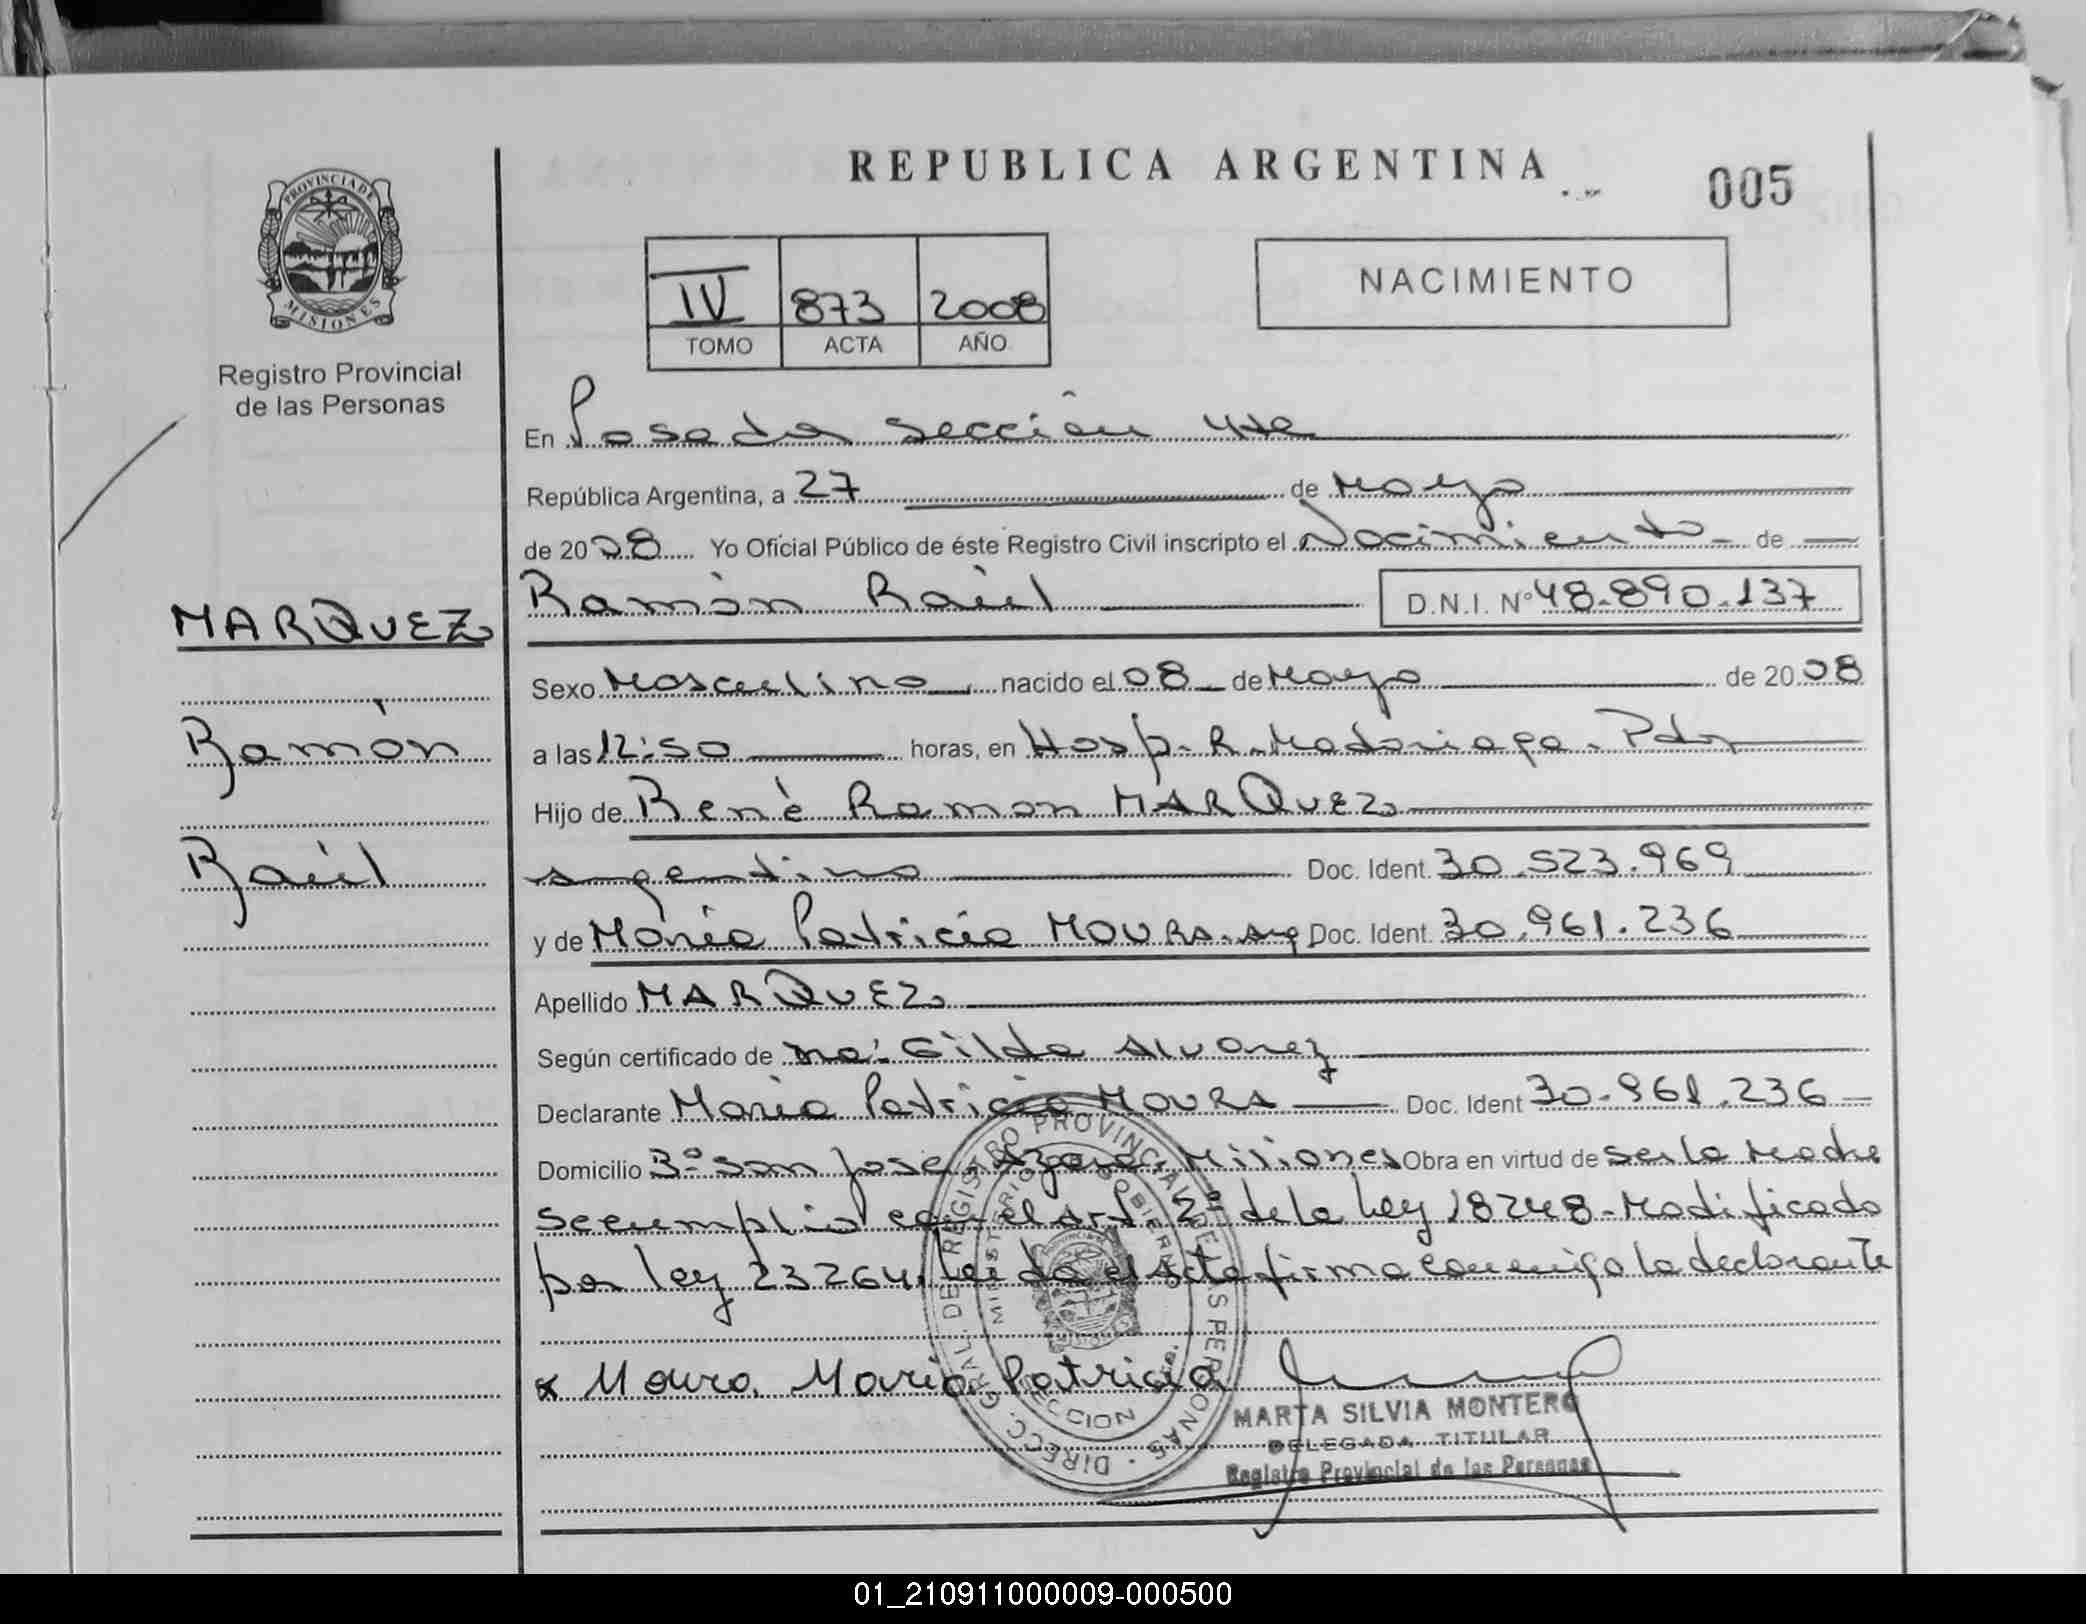 REPUBLICA ARGENTINA
005
PROVINCIA DE
MISIONES
Registro Provincial
de las Personas
IV 873 2008
TOMO ACTA AÑO
NACIMIENTO
En Posadas sección 4ta
República Argentina, a 27 de Mayo
de 2008 Yo Oficial Público de éste Registro Civil inscripto el Nacimiento de
MARQUEZ
Ramón Raúl D.N.I. Nº 48.890.137
Sexo Masculino nacido el 08 de Mayo de 2008
Ramón
a las 12:50 horas, en Hosp. R. Madariaga. Pdas
Hijo de Renè Ramon MARQUEZ
Raúl
argentino Doc. Ident. 30.523.969
y de María Patricia MOURA. arg Doc. Ident. 30.961.236
Apellido MARQUEZ
Según certificado de Ma. Gilda Alvarez
Declarante María Patricia MOURA Doc. Ident 30.961.236
Domicilio Bº San José. Azara. Misiones Obra en virtud de ser la Madre
se cumplió con el art. 2º de la Ley 18248-Modificado
por ley 23264. Leida el Acta firma conmigo la declarante
x Moura. María Patricia
DIRECC. GRAL. DE REGISTRO PROVINCIAL DE LAS PERSONAS
MARTA SILVIA MONTERO
DELEGADA TITULAR
Registro Provincial de las Personas
01_210911000009-000500